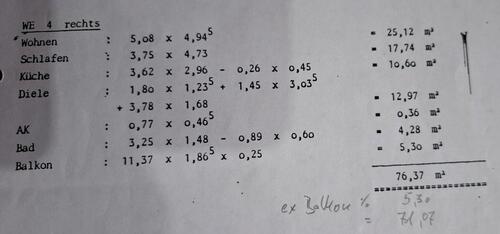 WE 4 rechts
Wohnen : 5,08 x 4,94⁵ = 25,12 m²
Schlafen : 3,75 x 4,73 = 17,74 m²
Küche : 3,62 x 2,96 - 0,26 x 0,45 = 10,60 m²
Diele : 1,80 x 1,23⁵ + 1,45 x 3,03⁵
+ 3,78 x 1,68 = 12,97 m²
AK : 0,77 x 0,46⁵ = 0,36 m²
Bad : 3,25 x 1,48 - 0,89 x 0,60 = 4,28 m²
Balkon : 11,37 x 1,86⁵ x 0,25 = 5,30 m²
76,37 m²
ex Balkon % 5,30
= 71,07